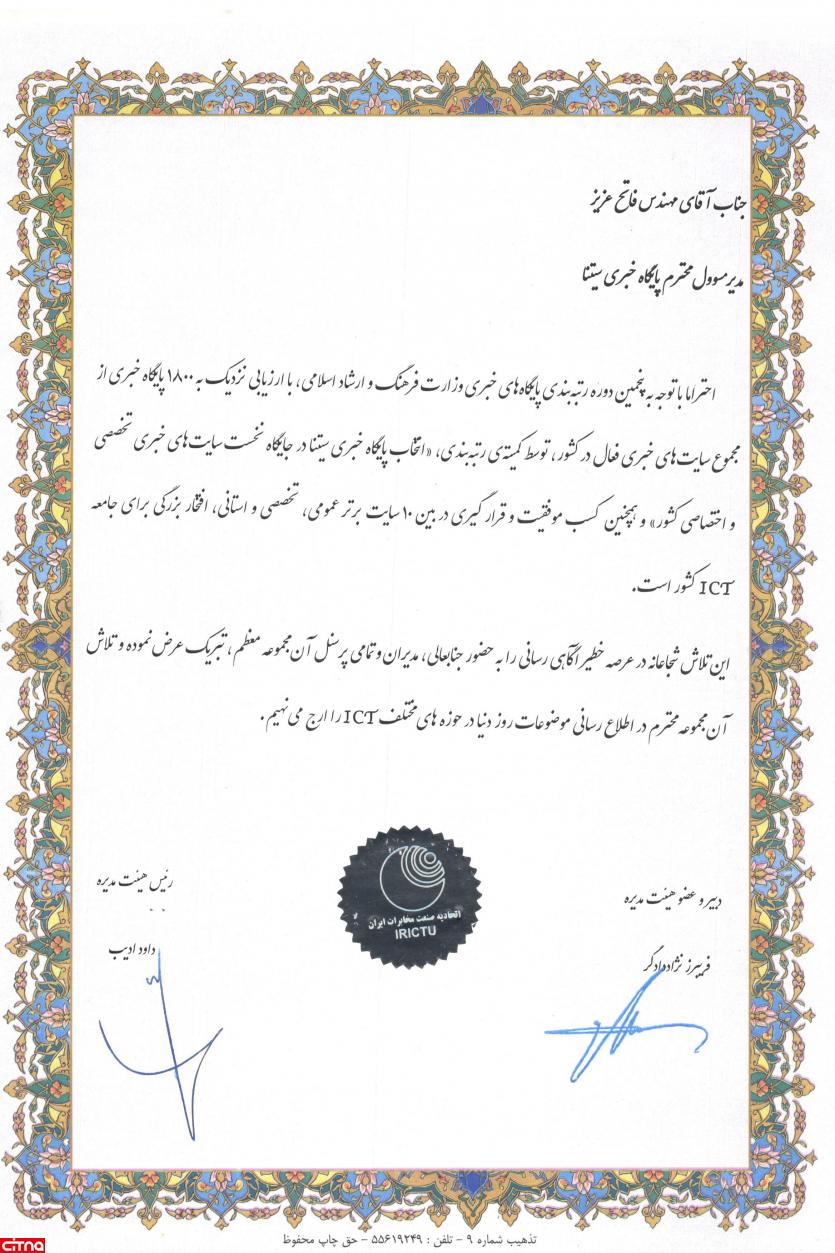 جناب آقای مهندس فاتح عزیز
مدیرمسوول محترم پایگاه خبری سیتنا
احتراما با توجه به پنجمین دوره رتبه‌بندی پایگاه‌های خبری وزارت فرهنگ و ارشاد اسلامی، با ارزیابی نزدیک به ۱۸۰۰ پایگاه خبری از
مجموع سایت‌های خبری فعال در کشور، توسط کمیته‌ی رتبه‌بندی، «انتخاب پایگاه خبری سیتنا در جایگاه نخست سایت‌های خبری تخصصی
و اختصاصی کشور» و همچنین کسب موفقیت و قرار گیری در بین ۱۰ سایت برتر عمومی، تخصصی و استانی، افتخار بزرگی برای جامعه
ICT کشور است.
این تلاش شجاعانه در عرصه خطیر آگاهی رسانی را به حضور جنابعالی، مدیران و تمامی پرسنل آن مجموعه معظم، تبریک عرض نموده و تلاش
آن مجموعه محترم در اطلاع رسانی موضوعات روز دنیا در حوزه های مختلف ICT را ارج می نهیم.
دبیر و عضو هیئت مدیره
فریبرز نژاددادگر
رئیس هیئت مدیره
داود ادیب
اتحادیه صنعت مخابرات ایران
IRICTU
تذهیب شماره ۹ - تلفن : ۵۵۶۱۹۲۴۹ - حق چاپ محفوظ
citna